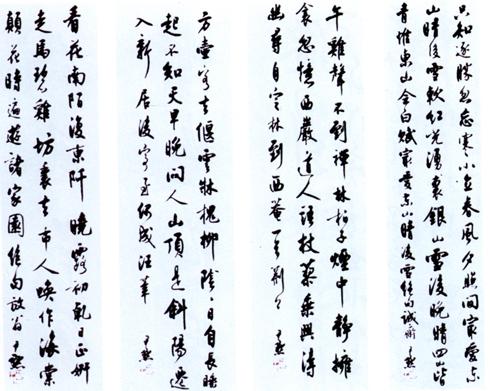 只知逐勝忽忘寒小立春風夕照間最愛東
山晴後雪軟紅光湧裏銀山雪後晚晴四山皆
青惟東山全白賦最愛東山晴後雪絕句誠齋 尹默
午雞聲不到禪林柏子煙中靜擁
衾忽憶西巖道人語杖藜乘興得
幽尋自定林到西菴一首荆公 尹默
方壺偃雲牀槐柳陰陰日自長睡
起不知天早晚問人山頂是斜陽遷
入新居後汪莘 尹默
看花南陌復東阡曉露初乾日正妍
走馬碧雞坊裏去市人喚作海棠
顛花時遍遊諸家園絕句放翁 尹默